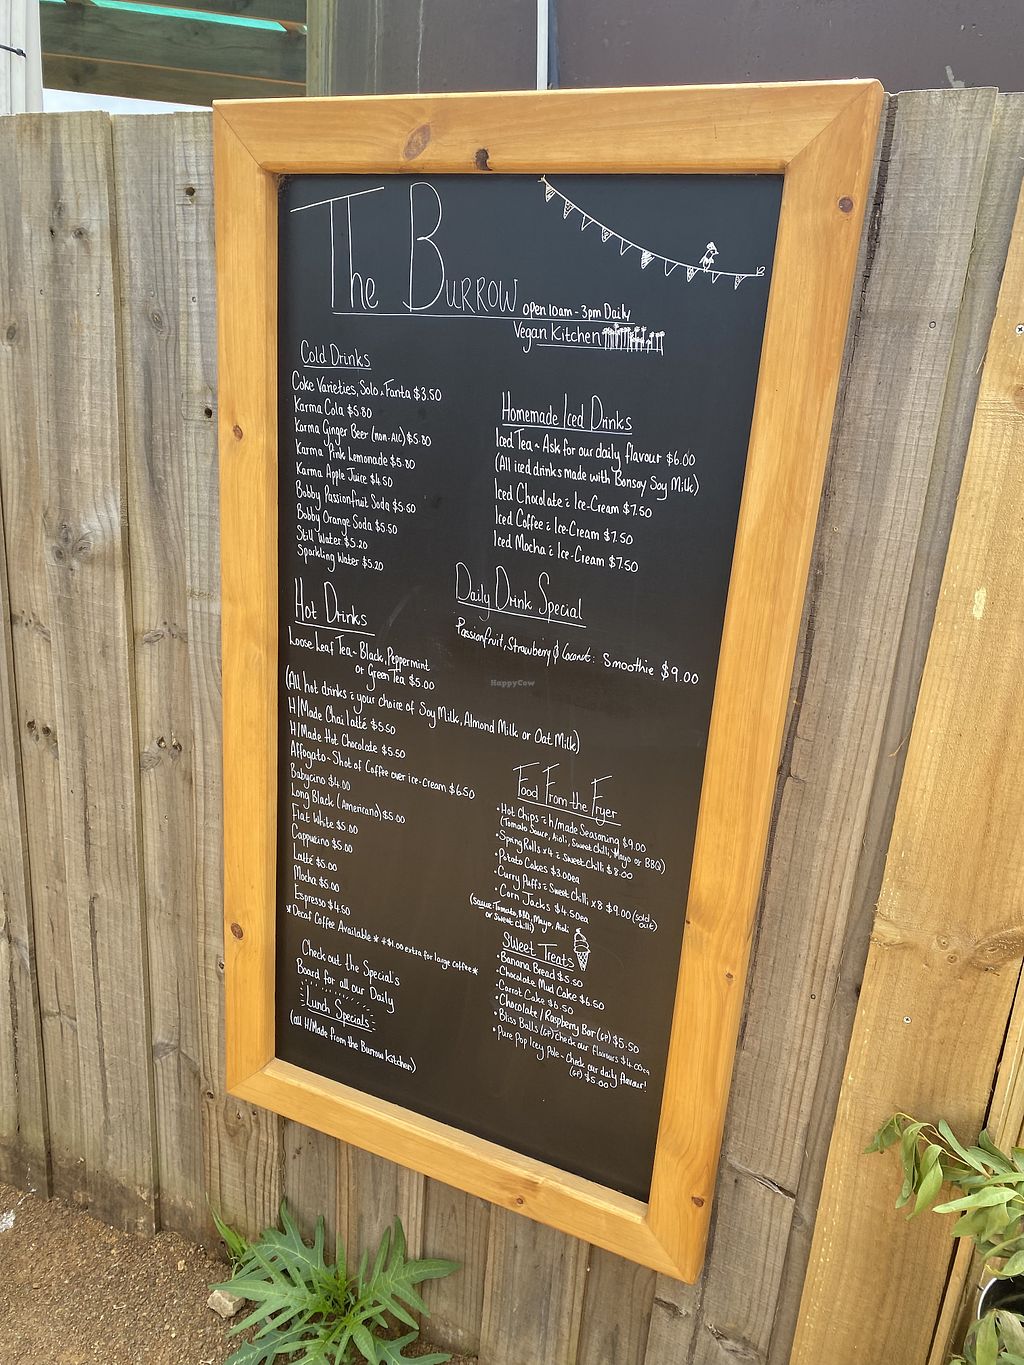 The Burrow
open 10am - 3pm Daily
Vegan Kitchen
Cold Drinks
Coke Varieties, Solo & Fanta $3.50
Karma Cola $5.80
Karma Ginger Beer (non-Alc) $5.80
Karma Pink Lemonade $5.80
Karma Apple Juice $4.50
Bobby Passionfruit Soda $5.50
Bobby Orange Soda $5.50
Still Water $5.20
Sparkling Water $5.20
Homemade Iced Drinks
Iced Tea ~ Ask for our daily flavour $6.00
(All iced drinks made with Bonsoy Soy Milk)
Iced Chocolate c Ice-Cream $7.50
Iced Coffee c Ice-Cream $7.50
Iced Mocha c Ice-Cream $7.50
Daily Drink Special
Passionfruit, Strawberry & Coconut: Smoothie $9.00
HappyCow
Hot Drinks
Loose Leaf Tea ~ Black, Peppermint
or Green Tea $5.00
(All hot drinks c your choice of Soy Milk, Almond Milk or Oat Milk)
H/Made Chai latté $5.50
H/Made Hot Chocolate $5.50
Affogato - Shot of Coffee over ice-cream $6.50
Babycino $4.00
Long Black (Americano) $5.00
Flat White $5.00
Cappucino $5.00
Latté $5.00
Mocha $5.00
Espresso $4.50
*Decaf Coffee Available * +$1.00 extra for large coffee*
Check out the Special's
Board for all our Daily
Lunch Specials
(all H/Made from the Burrow kitchen)
Food From the Fryer
• Hot Chips c h/made Seasoning $9.00
(Tomato Sauce, Aioli, Sweet chilli, Mayo or BBQ)
• Spring Rolls x4 c Sweet Chilli $8.00
• Potato Cakes $3.00ea
• Curry Puffs c Sweet Chilli x8 $9.00 (sold out)
• Corn Jacks $4.50ea
(Sauce: Tomato, BBQ, Mayo, Aioli
or Sweet Chilli)
Sweet Treats
• Banana Bread $5.50
• Chocolate Mud Cake $6.50
• Carrot Cake $6.50
• Chocolate / Raspberry Bar (GF) $5.50
• Bliss Balls (GF) check our flavours $4.00ea
• Pure Pop Icey Pole ~ check our daily flavour!
(GF) $5.00